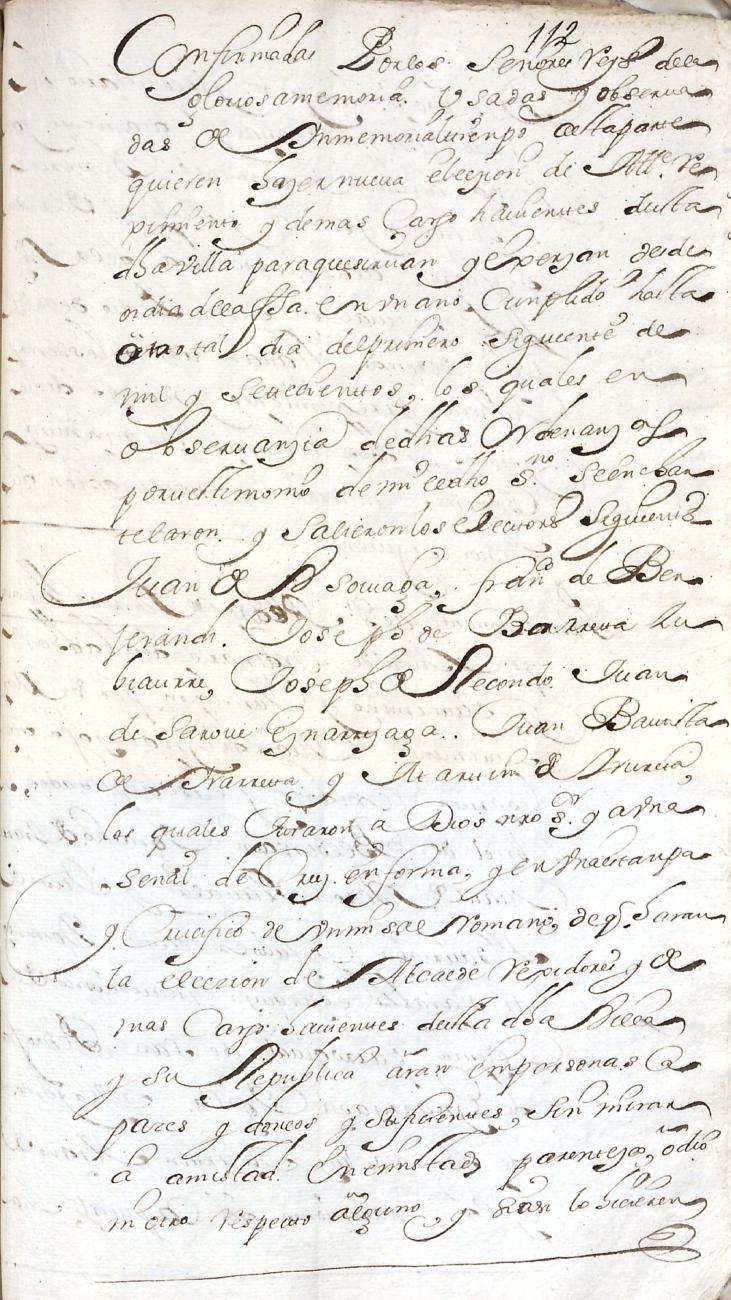 112
Confirmadas Por los Señores Reyes de la
gloriosa memoria. Usadas y observa
das de Inmemorial tiempo a esta parte
quieren hazer nueva elezion de Alle. Re
ximiento y demas Cargo havientes desta
dha villa para que sirvan y exerzan desde
oi dia de la ffha. en un año Cumplido hasta
otro tal dia del primero siguiente de
mil y setecientos, los quales en
observanzia de dhas Ordenanzas
por testimonio de mi el dho sno. se encan
telaron y salieron los electores siguientes
Juan de fran.co de Ber
Joseph de Barrena Zu
biaurre, Joseph de Recondo Juan
de Sarove Juan Bautista
de Yrarreta y Martin de
los quales Juraron a Dios nro Sr. y a una
señal de Cruz en forma, y en una estanpa
y Crucifico de un misal Romano, de q. haran
la elezion de Alcalde rexidores y de
mas Cargo havientes desta dha Villa
y su Republica aran en personas Ca
pazes y doneos y suficientes, sin mirar
a amistad Enemistad parentezco, odio
ni otro respecto alguno, y si asi lo hicieren